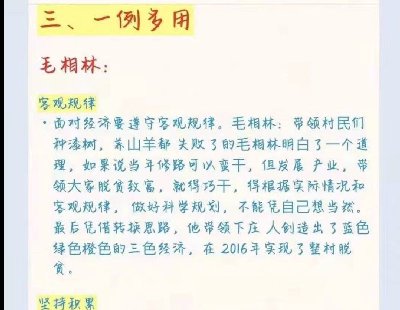 三、一例多用
毛相林:
客观规律
·面对经济要遵守客观规律。毛相林:带领村民们
种漆树,养山羊都 失败了的毛相林明白了一个道
理,如果说当年修路可以蛮干,但发展 产业,带
领大家脱贫致富,就得巧干,得根据实际情况和
客观规律,做好科学规划,不能凭自己想当然。
最后凭借转换思路,他带领下庄 人创造出了蓝色
绿色橙色的三色经济,在 2016年实现了整村脱
贫。
坚持积累